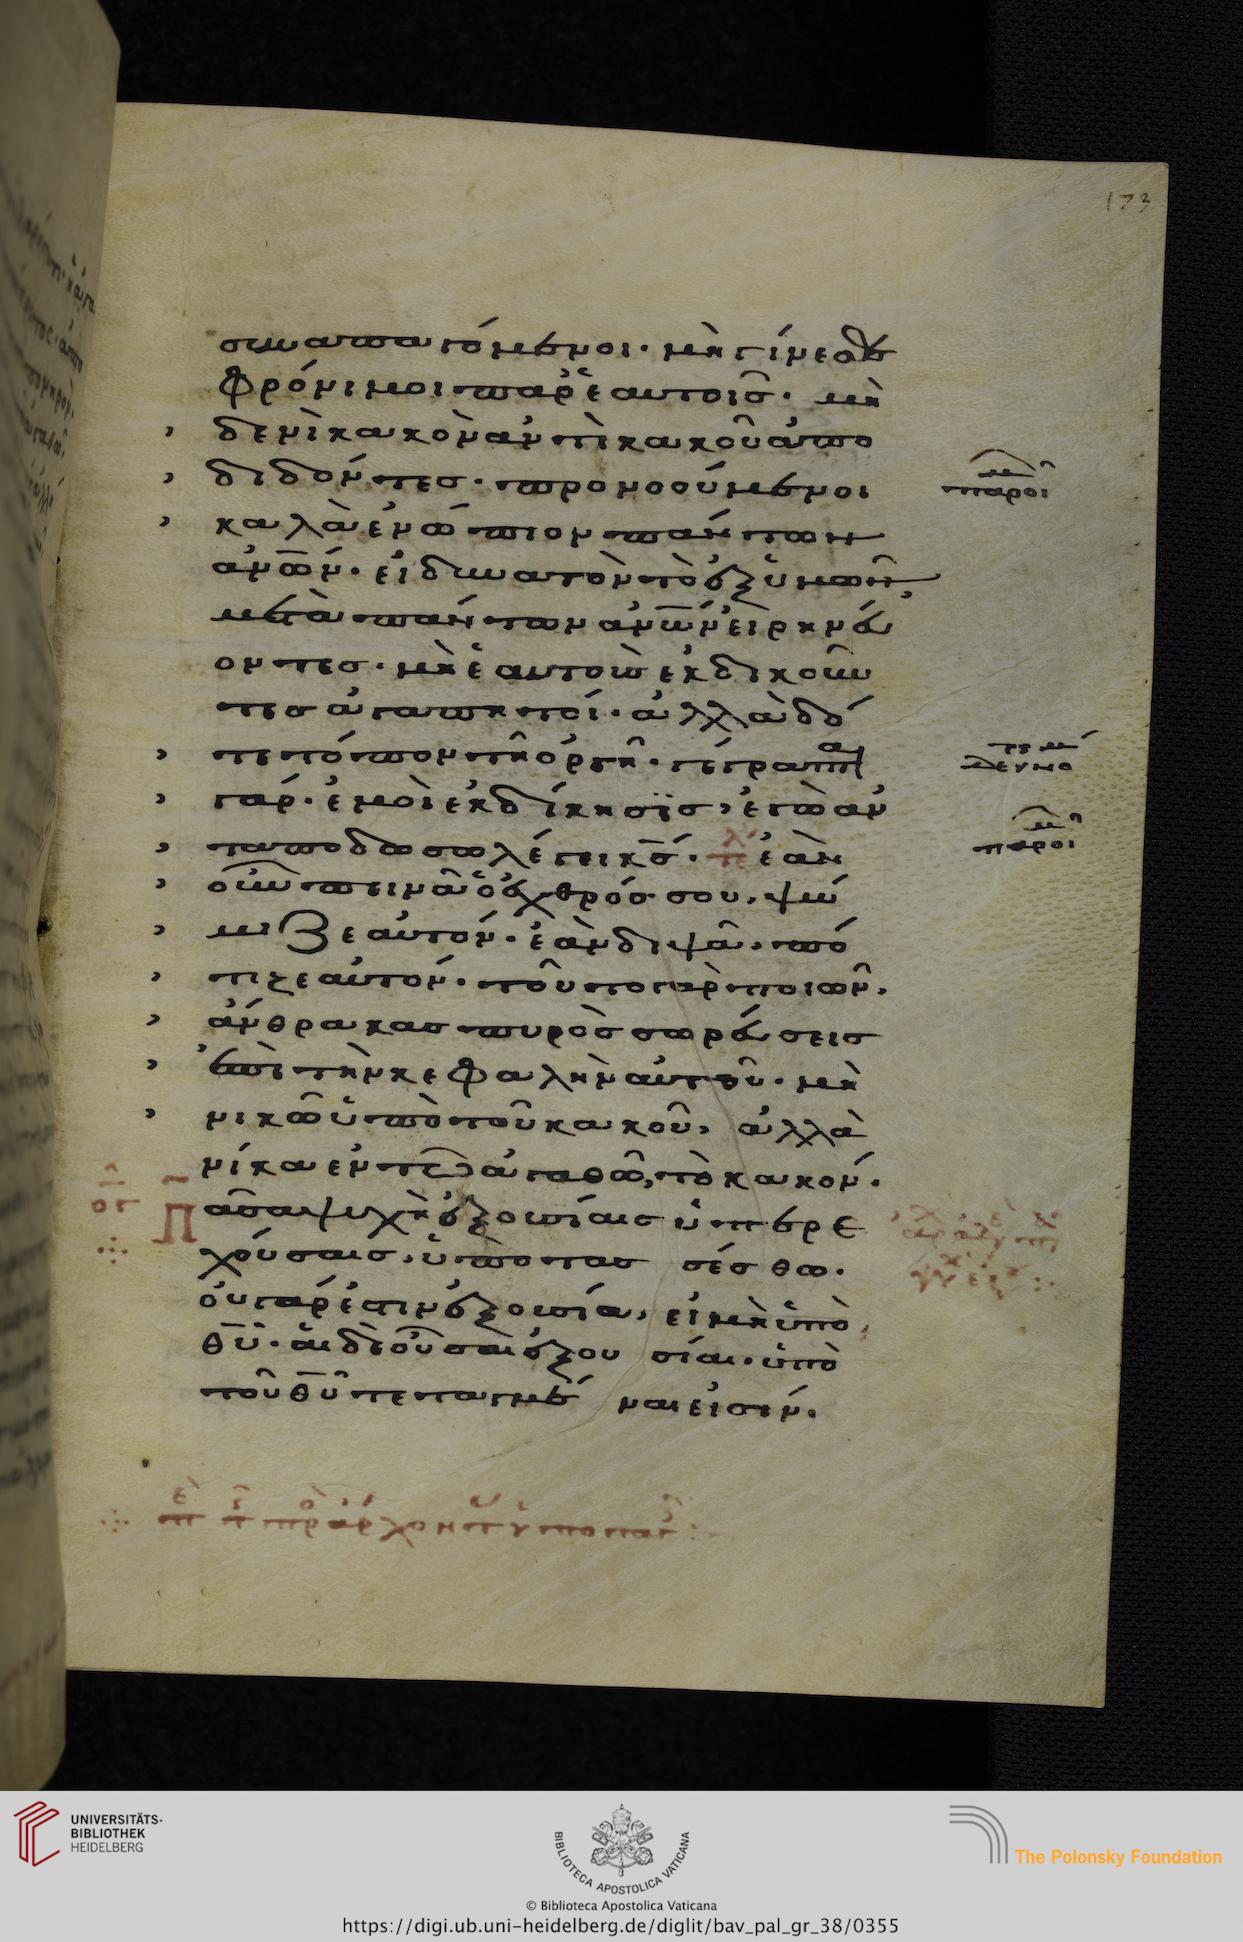 173
συναπαγόμενοι· μὴ γίνεσθε
φρόνιμοι παρ' ἑαυτοῖς· μη
δενὶ κακὸν ἀντὶ κακοῦ ἀπο
διδόντες· προνοούμενοι
παροι μ
καλὰ ἐνώπιον πάντων
ἀν̅ω̅ν· εἰ δυνατὸν τὸ ἐξ ὑμῶν,
μετὰ πάντων ἀν̅ω̅ν εἰρηνεύ
οντες· μὴ ἑαυτοὺς ἐκδικοῦν
τες ἀγαπητοί· ἀλλὰ δό
τε τόπον τῆ ὀργῆ· γέγραπται
δευτερονο μ
γάρ· ἐμοὶ ἐκδίκησϊς, ἐγὼ ἀν
παροι μ
ταποδώσω λέγει κ̅ς· ἐὰν
οὖν πεινᾶ ὁ ἐχθρός σου, ψώ
μιζε αὐτόν· ἐὰν διψᾶ, πό
τιζε αὐτόν· τοῦτο γὰρ ποιῶν,
ἄνθρακας πυρὸς σωρεύσεις
ἐπὶ τὴν κεφαλὴν αὐτοῦ· μὴ
νικῶ ὑπὸ τοῦ κακοῦ, ἀλλὰ
νίκα ἐν τῶ ἀγαθῶ, τὸ κακόν·
Πᾶσα ψυχὴ ἐξουσίαις ὑπερε
χούσαις, ὑποτασσέσθω·
οὐ γάρ ἐστιν ἐξουσία, εἰ μὴ ὑπὸ
θ̅υ̅· αἱ δὲ οὖσαι ἐξουσίαι· ὑπὸ
τοῦ θ̅υ̅ τεταγμέναι εἰσίν·
UNIVERSITÄTS-
BIBLIOTHEK
HEIDELBERG
BIBLIOTECA APOSTOLICA VATICANA
The Polonsky Foundation
© Biblioteca Apostolica Vaticana
https://digi.ub.uni-heidelberg.de/diglit/bav_pal_gr_38/0355